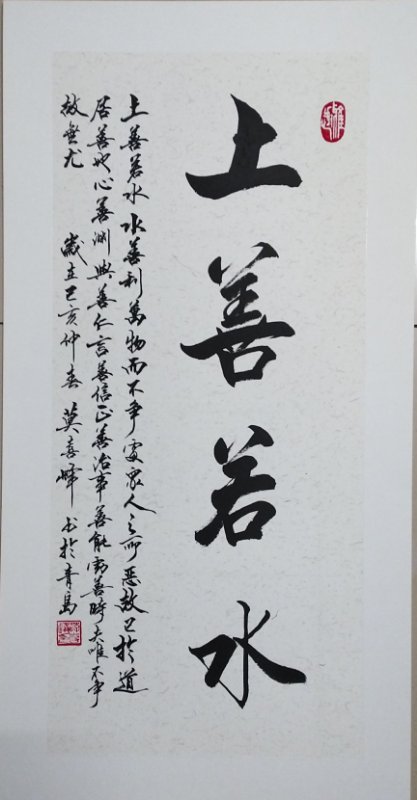 上善若水
上善若水水善利萬物而不争處衆人之所惡故已於道
居善地心善渊與善仁言善信正善治事善能動善時夫唯不争
故無尤 歲在己亥仲春 莫喜峰书於青島